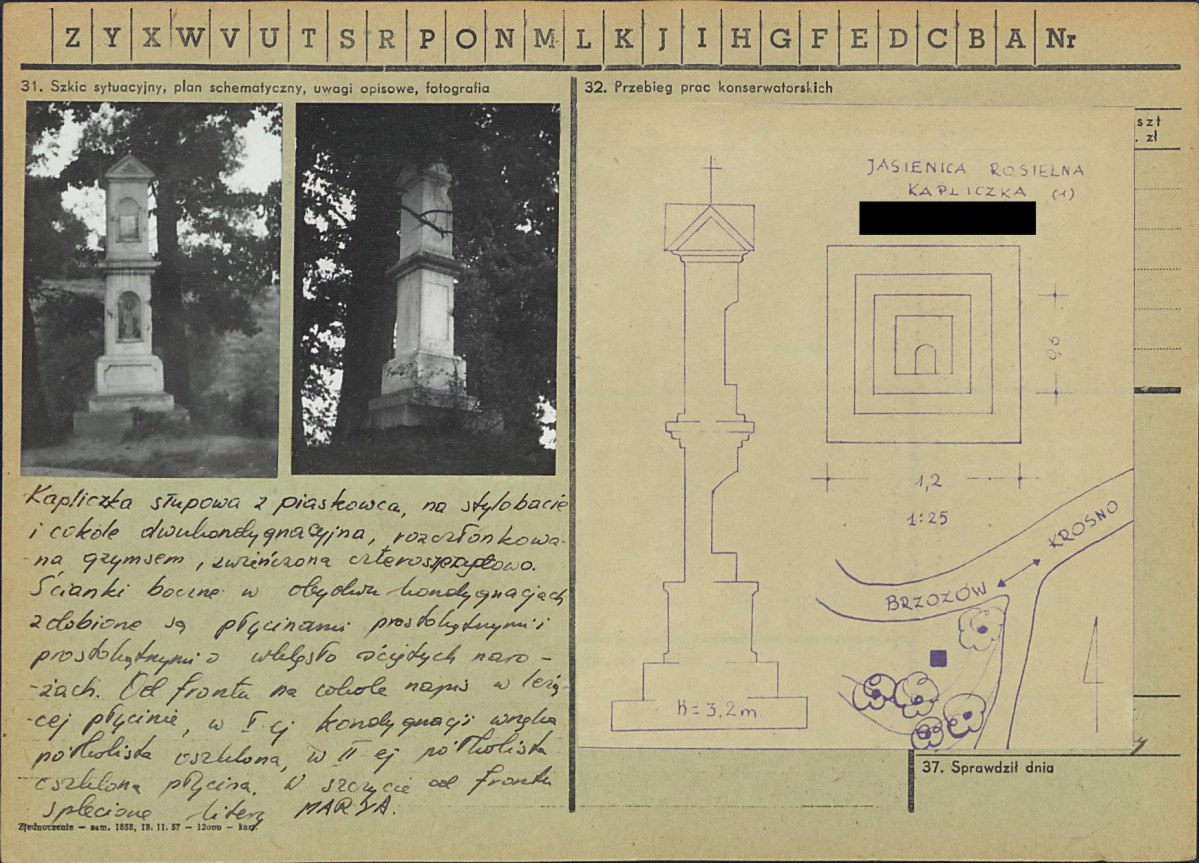 Z Y X W V U T S R P O N M L K J I H G F E D C B A Nr
31. Szkic sytuacyjny, plan schematyczny, uwagi opisowe, fotografia
Kapliczka słupowa z piaskowca, na stylobacie
i cokole dwukondygnacyjna, rozczłonkowa-
-na gzymsem, zwieńczona czterospadowo.
Ścianki boczne w obydwu kondygnacjach
zdobione są płycinami prostokątnymi i
prostokątnymi o wklęsło ściętych naro-
-żach. Od frontu na cokole napis w leżą-
-cej płycinie, w I-ej kondygnacji wnęka
półkolista oszklona, w II-ej półkolista
oszklona płycina. W szczycie od frontu
splecione litery MARYA.
Zjednoczenie — zam. 1858, 18. 11. 57 — 12000 — karz.
32. Przebieg prac konserwatorskich
szt
. zł
JASIENICA ROSIELNA
KAPLICZKA (1)
0,6
1,2
1:25
KROSNO
BRZOZÓW
h = 3,2 m.
37. Sprawdził dnia